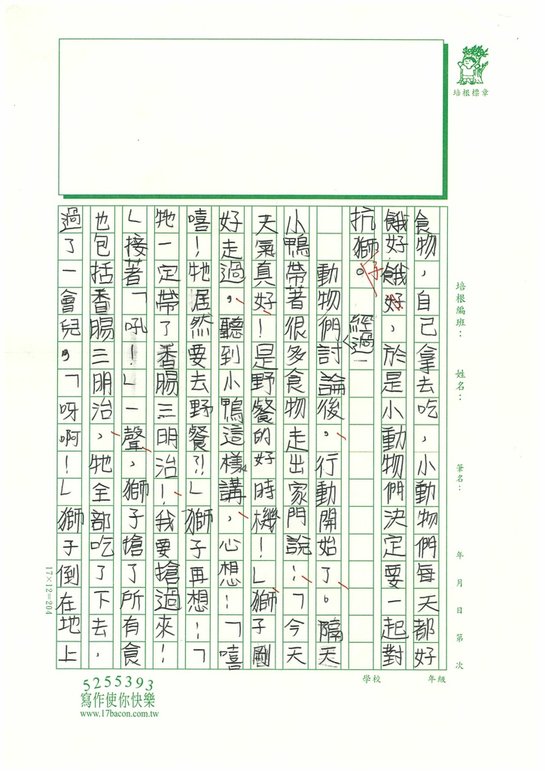 培根標章
培根編班：
姓名：
筆名：
年 月 日 第 次
食物，自已拿去吃，小動物們每天都好
餓好餓好，於是小動物們決定要一起對
抗獅。仔
經過
動物們討論後，行動開始了。隔天
小鴨帶著很多食物走出家門說：「今天
天氣真好！是野餐的好時機！」獅子剛
好走過，聽到小鴨這樣講，心想：「嘻
嘻！牠居然要去野餐?!」獅子再想：「
牠一定帶了香腸三明治！我要搶過來！
」接著「吼！」一聲，獅子搶了所有食
也包括香腸三明治，牠全部吃了下去，
過了一會兒，「呀啊！」獅子倒在地上
17×12=204
學校
年級
5255393
寫作使你快樂
www.17bacon.com.tw